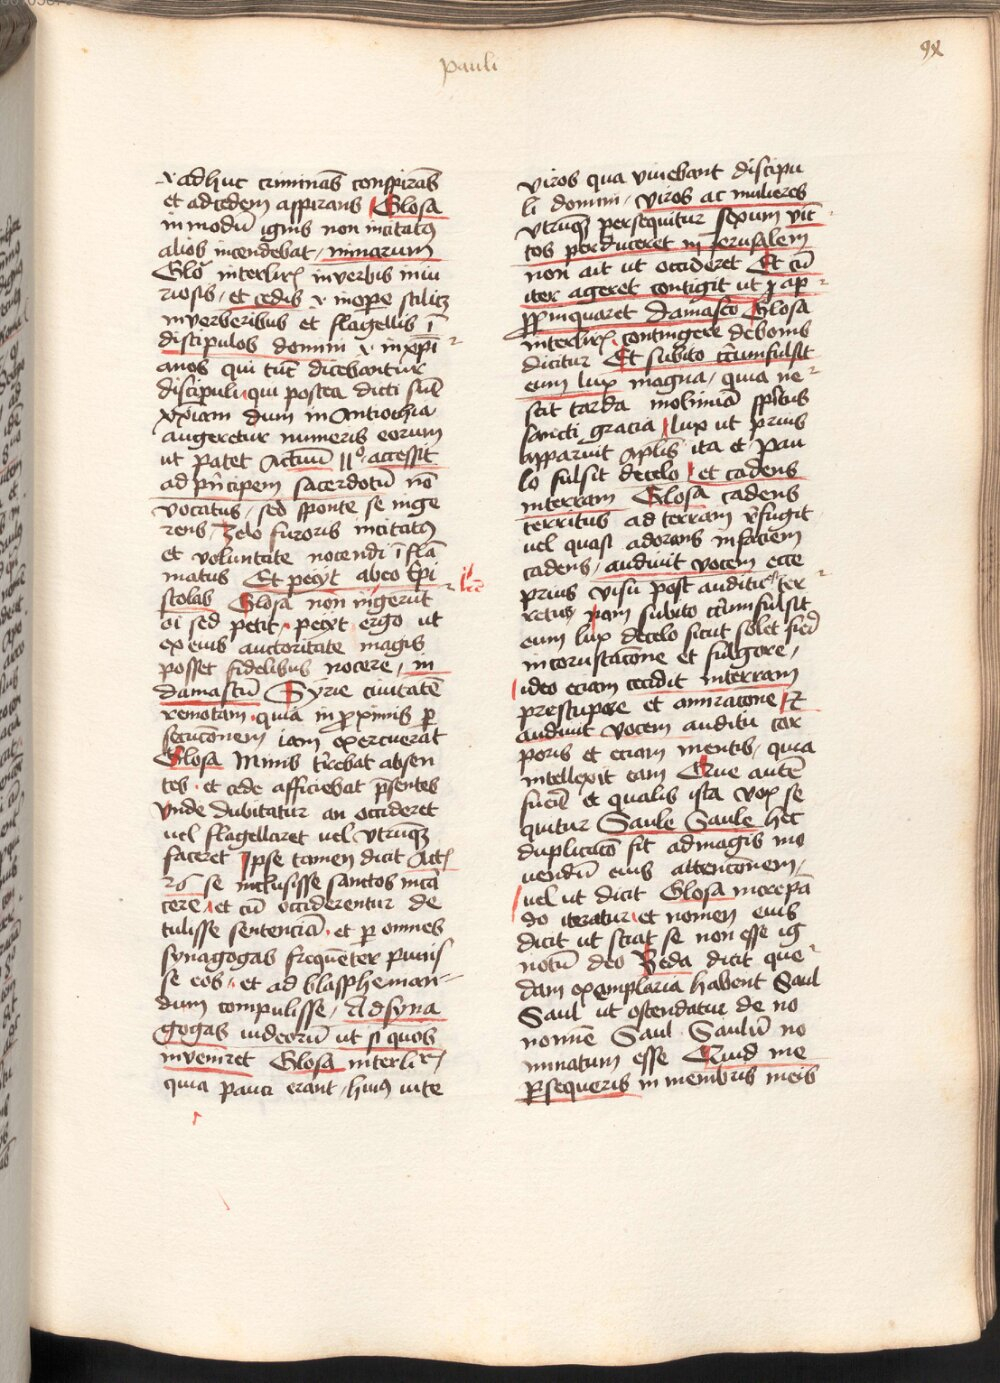 pauli
9x
v adhuc criminās conspirās
et ad cedem aspirans Glosa
in modū ignis non incitatꝰ
alios incendebat / minarum
Glo interlinꝭ in verbis iniu
riosis / et cedis v inope stilicꝫ
in verberibus et flagellis ī
discipulos domini v in xp̄i
anos qui tūc dicebantur
discipuli qui postea dicti sūt
xp̄iani dum in Antiochia
augeretur numerꝰ eorum
ut patet Actuū 11º accessit
ad p̄ncipem sacerdotū nō
vocatus / sed sponte se inge
rens / zelo furoris incitatꝰ
et voluntate nocendi īflā
matus Et petyt ab eo Epi
stolas Glosa non ingerūt
ei sed petit petyt ergo ut
ex eius auctoritate magis
posset fidelibus nocere / in
damascū Syrie ciuitatē
remotam quia in proximis ꝑ
secucōnem iam exercuerat
Glosa Minis t̄rebat absen
tes et cede afficiebat p̄sentes
Vnde dubitatur an occideret
uel flagellaret uel vtrūqꝫ
faceret Ipse tamen dicit Actꝭ
26 se inclusisse sanctos in cā
cere et cū occiderentur de
tulisse sentenciā et ꝑ omnes
synagogas frequēter punis
se eos et ad blaspheman
dum compulisse / Ad syna
gogas iudeorū ut si quos
inveniret Glosa interlinꝭ
quia pauci erant / huius vite
viros qua viuebant discipu
li domini / viros ac mulieres
vtrūqꝫ persequitur sexum vīc
tos perduceret in Jerusalem
non ait ut occideret Et cū
iter ageret contigit ut ꝓ ap
ꝓpinquaret damasco Glosa
interlinꝭ contingere de bonis
dicitur Et subito circumfulsit
eum lux magna / quia ne
scit tarda molimiā spūs
sancti gracia lux ut prius
apparuit aplīs ita et Pau
lo fulsit de celo et cadens
in terram Glosa cadens
territus ad terram refugit
uel quasi adorans in faciem
cadens / audiuit vocem ecce
prius visu post auditu ter
retur / nam subito circumfulsit
eum lux de celo sicut solet fieri
in corustacōne et fulgore /
ideo eciam cecidit in terram
pre stupore et amiracōne Et
audiuit vocem auditu cor
poris et eciam mentis / quia
intellexit eam Que autē
fuerit et qualis ista vox se
quitur Saule Saule hec
duplicatō fit ad magis mo
uendū eius attencōnem /
uel ut dicit Glosa increpā
do iteratur et nomen eius
dicit ut sciat se non esse ig
notū deo Beda dicit que
dam exemplaria habent Saul
Saul ut ostendatur de no
nomīe Saul Saulū no
minatum esse Quid me
ꝑsequeris in membris meis